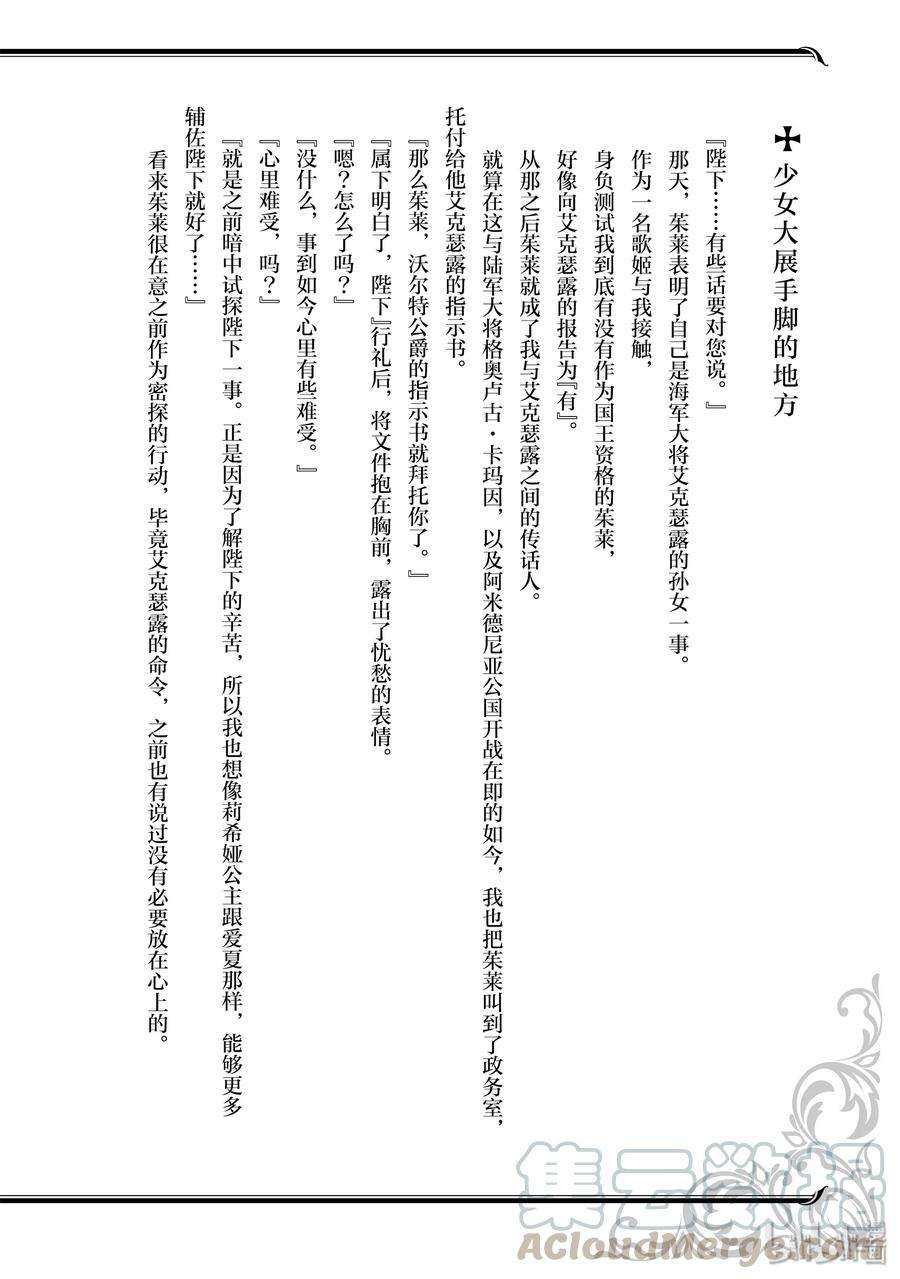 ✠少女大展手脚的地方
『陛下……有些话要对您说。』
那天，茱莱表明了自己是海军大将艾克瑟露的孙女一事。
作为一名歌姬与我接触，
身负测试我到底有没有作为国王资格的茱莱，
好像向艾克瑟露的报告为『有』。
从那之后茱莱就成了我与艾克瑟露之间的传话人。
就算在这与陆军大将格奥卢古·卡玛因，以及阿米德尼亚公国开战在即的如今，我也把茱莱叫到了政务室，
托付给他艾克瑟露的指示书。
『那么茱莱，沃尔特公爵的指示书就拜托你了。』
『属下明白了，陛下』行礼后，将文件抱在胸前，露出了忧愁的表情。
『嗯？怎么了吗？』
『没什么，事到如今心里有些难受。』
『心里难受，吗？』
『就是之前暗中试探陛下一事。正是因为了解陛下的辛苦，所以我也想像莉希娅公主跟爱夏那样，能够更多
辅佐陛下就好了……』
看来茱莱很在意之前作为密探的行动，毕竟艾克瑟露的命令，之前也有说过没有必要放在心上的。
集云数据
AcloudMerge.com